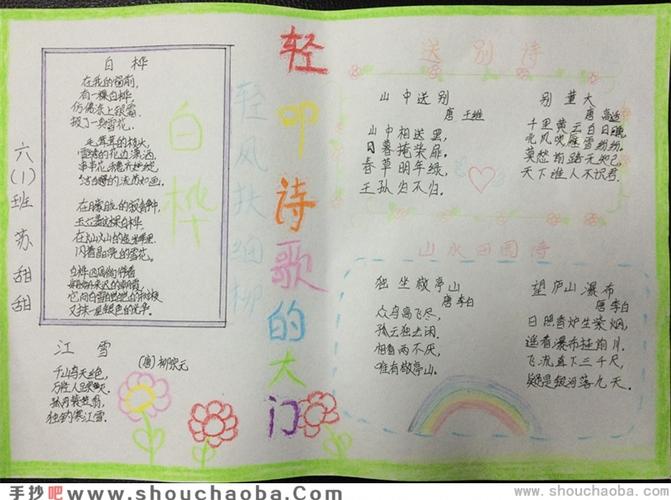 六(1)班 苏甜甜
白桦
在我的窗前,
有一棵白桦,
仿佛涂上银霜,
披了一身雪花。
毛茸茸的枝头,
雪绣的花边潇洒,
串串花穗齐绽,
洁白的流苏如画。
在朦胧的寂静中,
玉立着这棵白桦,
在灿灿的金晖里
闪着晶亮的雪花。
白桦四周徜徉着
姗姗来迟的朝霞,
它向白雪皑皑的树枝
又抹一层银色的光华。
白桦
轻风扶细柳
江雪
(唐)柳宗元
千山鸟飞绝,
万径人踪灭。
孤舟蓑笠翁,
独钓寒江雪.
轻叩诗歌的大门
送别诗
山中送别
唐 王维
山中相送罢,
日暮掩柴扉。
春草明年绿,
王孙归不归。
别董大
唐 高适
千里黄云白日曛,
北风吹雁雪纷纷.
莫愁前路无知己,
天下谁人不识君.
山水田园诗
独坐敬亭山
唐 李白
众鸟高飞尽,
孤云独去闲.
相看两不厌,
唯有敬亭山.
望庐山瀑布
唐 李白
日照香炉生紫烟,
遥看瀑布挂前川.
飞流直下三千尺,
疑是银河落九天.
手抄吧 www.shouchaoba.Com
www.shouchaoba.com